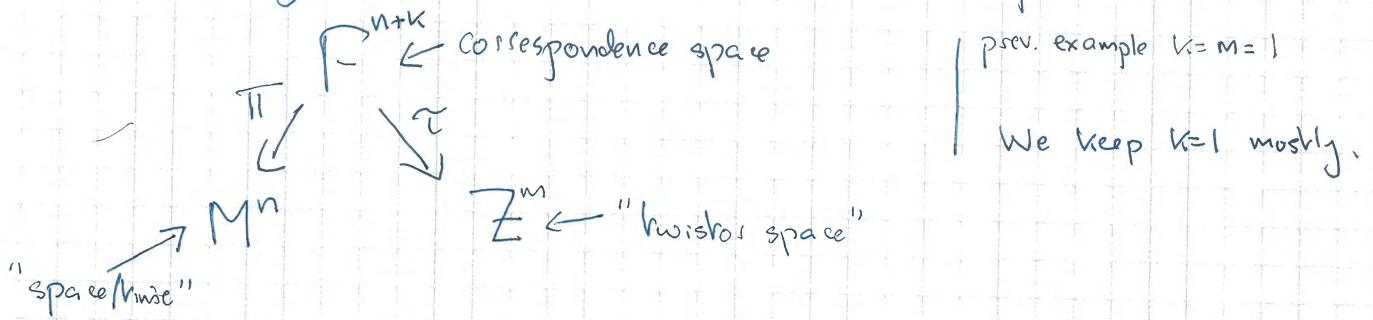 Γ^{n+k} ← correspondence space
π τ
M^n Z^m ← "twistor space"
"space/time"
prev. example k=m=1
We keep k=1 mostly.